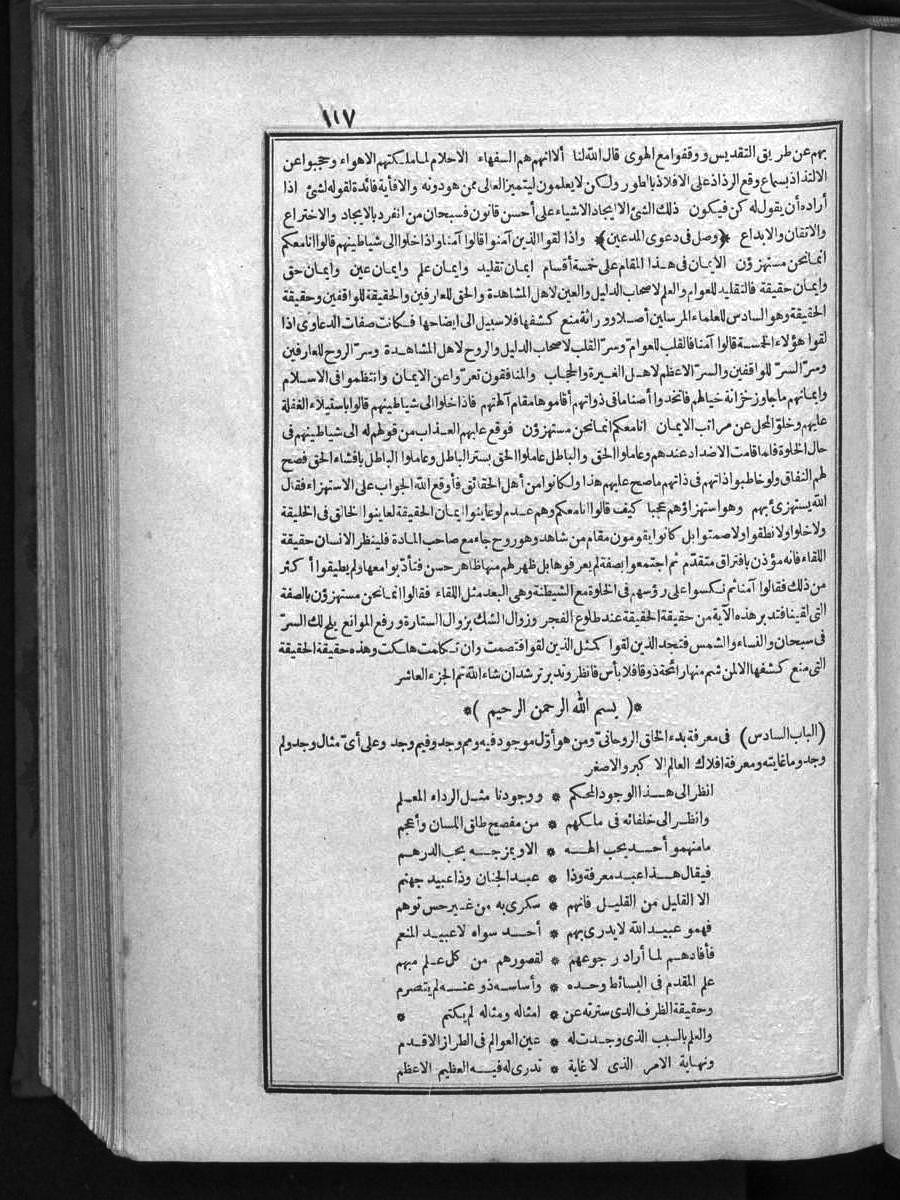 ١١٧
بهم عن طريق التقديس ووقفوا مع الهوى قال الله لنا ألا انهم هم السفهاء الاحلام لما ملكتهم الاهواء وحجبوا عن
الالتذاذ بسماع وقع الرذاذ على الافلاذ بالطور ولكن لا يعلمون ليتميز العالى ممن هو دونه والا فأية فائدة لقوله لشئ اذا
أراده أن يقول له كن فيكون ذلك الشئ الا ايجاد الاشياء على أحسن قانون فسبحان من انفرد بالايجاد والاختراع
والاتقان والابداع ﴿وصل فى دعوى المدعين﴾ واذا لقوا الذين آمنوا قالوا آمنا واذا خلوا الى شياطينهم قالوا انا معكم
انما نحن مستهزؤن الايمان فى هذا المقام على خمسة أقسام ايمان تقليد وايمان علم وايمان عين وايمان حق
وايمان حقيقة فالتقليد للعوام والعلم لاصحاب الدليل والعين لاهل المشاهدة والحق للعارفين والحقيقة للواقفين وحقيقة
الحقيقة وهو السادس للعلماء المرسلين أصلا ووراثة منع كشفها فلا سبيل الى ايضاحها فكانت صفات الدعاوى اذا
لقوا هؤلاء الخمسة قالوا آمنا فالقلب للعوام وسر القلب لاصحاب الدليل والروح لاهل المشاهدة وسر الروح للعارفين
وسر السر للواقفين والسر الاعظم لاهل الغيرة والحجاب والمنافقون تعروا عن الايمان وانتظموا فى الاسلام
وايمانهم ما جاوز خزانة خيالهم فاتخذوا أصناما فى ذواتهم أقاموها مقام آلهتهم فاذا خلوا الى شياطينهم قالوا باستيلاء الغفلة
عليهم وخلو المحل عن مراتب الايمان انا معكم انما نحن مستهزؤن فوقع عليهم العذاب من قولهم له الى شياطينهم فى
حال الخلوة فلما قامت الاضداد عندهم وعاملوا الحق والباطل عاملوا الحق بستر الباطل وعاملوا الباطل بافشاء الحق فصح
لهم النفاق ولو خاطبوا ذاتهم فى ذاتهم ما صح عليهم هذا ولكانوا من أهل الحقائق فأوقع الله الجواب على الاستهزاء فقال
الله يستهزئ بهم وهو استهزاؤهم عجبا كيف قالوا انا معكم وهم عدم لو عاينوا ايمان الحقيقة لعاينوا الخالق فى الخليقة
ولا خلوا ولا نطقوا ولا صمتوا بل كانوا يقومون مقام من شاهد وهو روح جاء مع صاحب المادة فلينظر الانسان حقيقة
اللقاء فانه مؤذن بافتراق متقدم ثم اجتمعوا بصفة لم يعرفوها بل ظهر لهم منها ظاهر حسن فتأدبوا معها ولم يطيقوا أكثر
من ذلك فقالوا آمنا ثم نكسوا على رؤسهم فى الخلوة مع الشيطنة وهى البعد مثل اللقاء فقالوا انما نحن مستهزؤن بالصفة
التى لقينا فتدبر هذه الآية من حقيقة الحقيقة عند طلوع الفجر وزوال الشك بزوال الستارة ورفع الموانع يلح لك السر
فى سبحان والنساء والشمس فتجد الذين لقوا كمثل الذين لقوا فتصمت وان تكلمت هلكت وهذه حقيقة الحقيقة
التى منع كشفها الا لمن شم منها رائحة ذوقا فلا بأس فانظر وتدبر ترشد ان شاء الله تم الجزء العاشر
*( بسم الله الرحمن الرحيم )*
(الباب السادس) فى معرفة بدء الخلق الروحانى ومن هو أول موجود فيه ومم وجد وفيم وجد وعلى أى مثال وجد ولم
وجد وما غايته ومعرفة افلاك العالم الاكبر والاصغر
انظر الى هذا الوجود المحكم * ووجودنا مثل الرداء المعلم
وانظر الى خلفائه فى ملكهم * من مفصح طلق اللسان وأعجم
ما منهمو أحد يحب الهه * الا ويمزجه بحب الدرهم
فيقال هذا عبد معرفة وذا * عبد الجنان وذا عبيد جهنم
الا القليل من القليل فانهم * سكرى به من غير حس توهم
فهمو عبيد الله لا يدرى بهم * أحد سواه لا عبيد المنعم
فأفادهم لما أراد رجوعهم * لقصورهم من كل علم مبهم
علم المقدم فى البسائط وحده * وأساسه ذو عنه لم يتصرم
وحقيقة الظرف الذى سترته عن * امثاله ومثاله لم يكتم *
والعلم بالسبب الذى وجدت له * عين العوالم فى الطراز الاقدم
ونهاية الامر الذى لا غاية * تدرى له فيه العظيم الاعظم